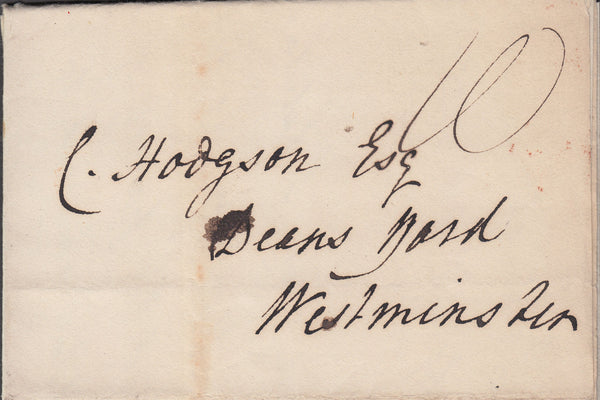 10
C. Hodgson Esq
Deans Yard
Westminster